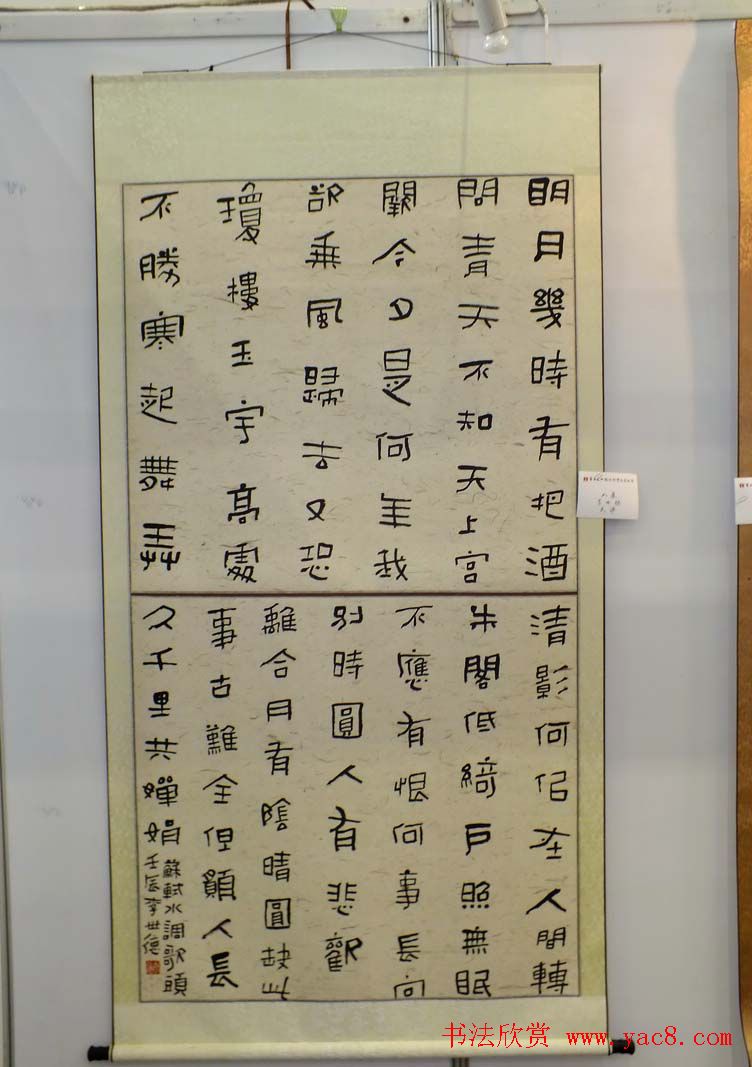 明月幾時有把酒
問青天不知天上宮
闕今夕是何年我
欲乘風歸去又恐
瓊樓玉宇高處
不勝寒起舞弄
清影何似在人間轉
朱閣低綺戶照無眠
不應有恨何事長向
別時圓人有悲歡
離合月有陰晴圓缺此
事古難全但願人長
久千里共嬋娟
蘇軾水調歌頭
壬辰李世德
书法欣赏 www.yac8.com